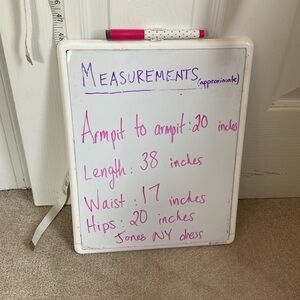 MEASUREMENTS (approximate)
Armpit to armpit: 20 inches
Length: 38 inches
Waist: 17 inches
Hips: 20 inches
Jones NY dress